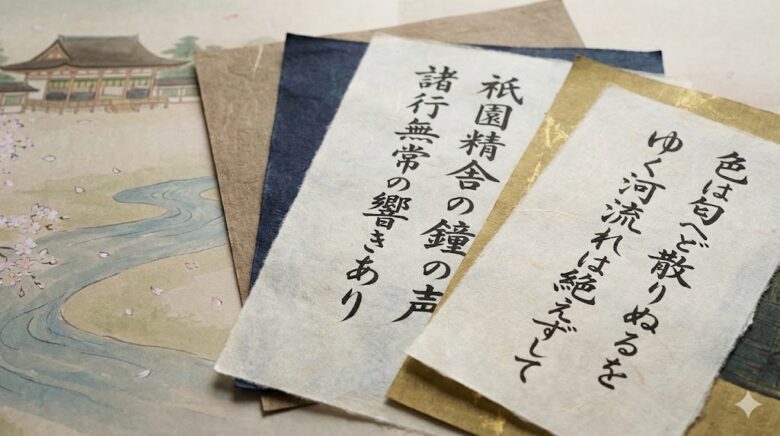 色は匂へど散りぬるを
ゆく河流れは絶えずして
祇園精舎の鐘の声
諸行無常の響きあり